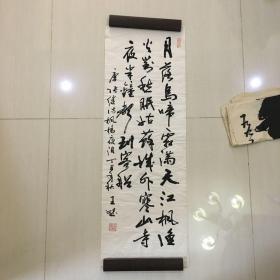 月落乌啼霜满天江枫渔
火对愁眠姑苏城外寒山寺
夜半钟声到客船
唐张继诗枫桥夜泊丁亥秋王